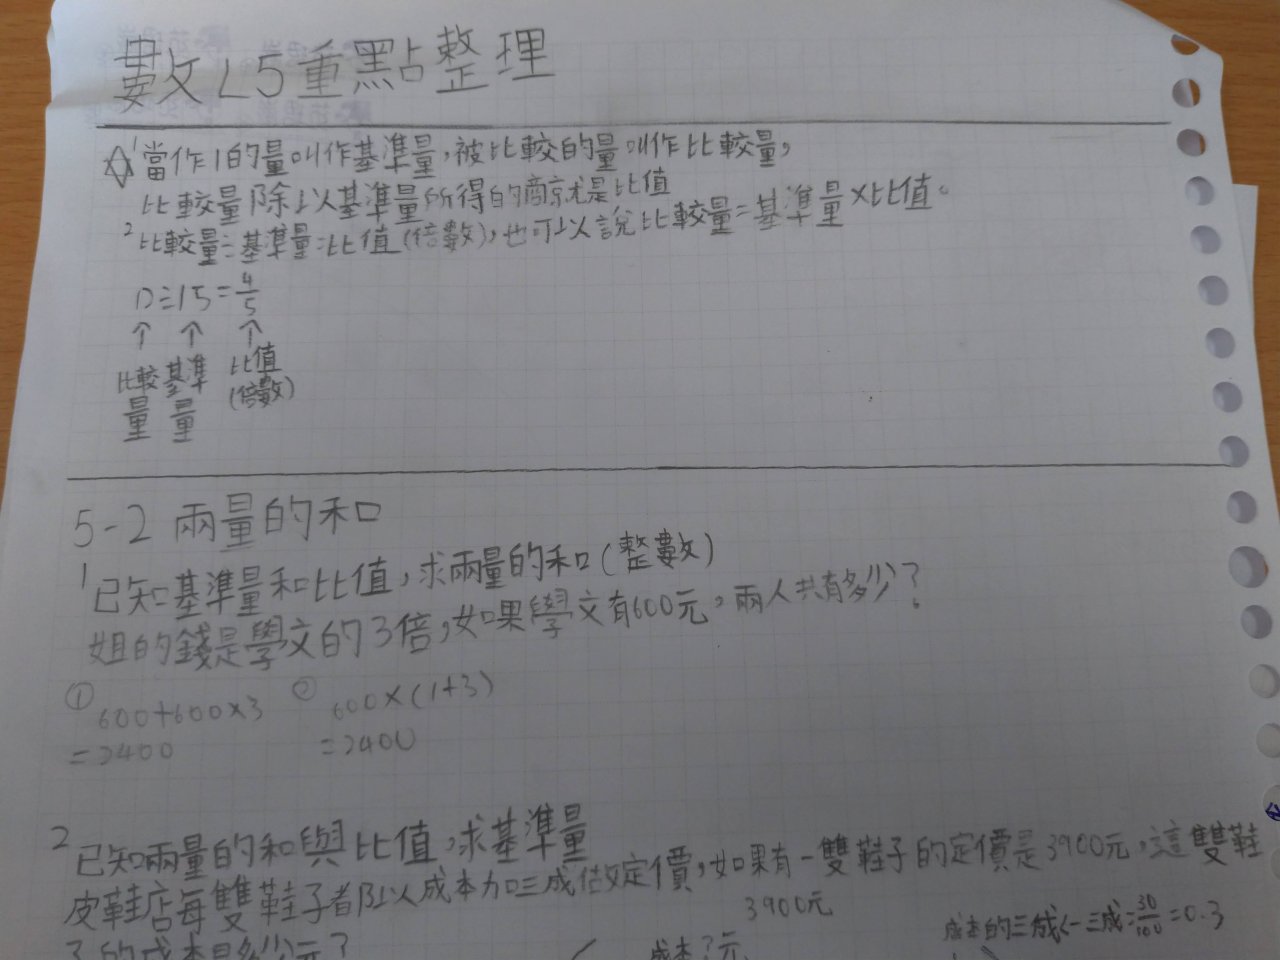 數L5重點整理
1 當作1的量叫作基準量,被比較的量叫作比較量,
比較量除以基準量所得的商就是比值
2 比較量÷基準量=比值(倍數),也可以說比較量=基準量×比值。
12÷15=4/5
↑ ↑ ↑
比較量 基準量 比值(倍數)
5-2 兩量的和
1 已知基準量和比值,求兩量的和(整數)
姐的錢是學文的3倍,如果學文有600元,兩人共有多少?
① 600+600×3 ② 600×(1+3)
=2400 =2400
2 已知兩量的和與比值,求基準量
皮鞋店每雙鞋子都以成本加三成做定價,如果有一雙鞋子的定價是3900元,這雙鞋
3900元
成本的三成←三成=30/100=0.3
子的成本是多少元?
成本?元